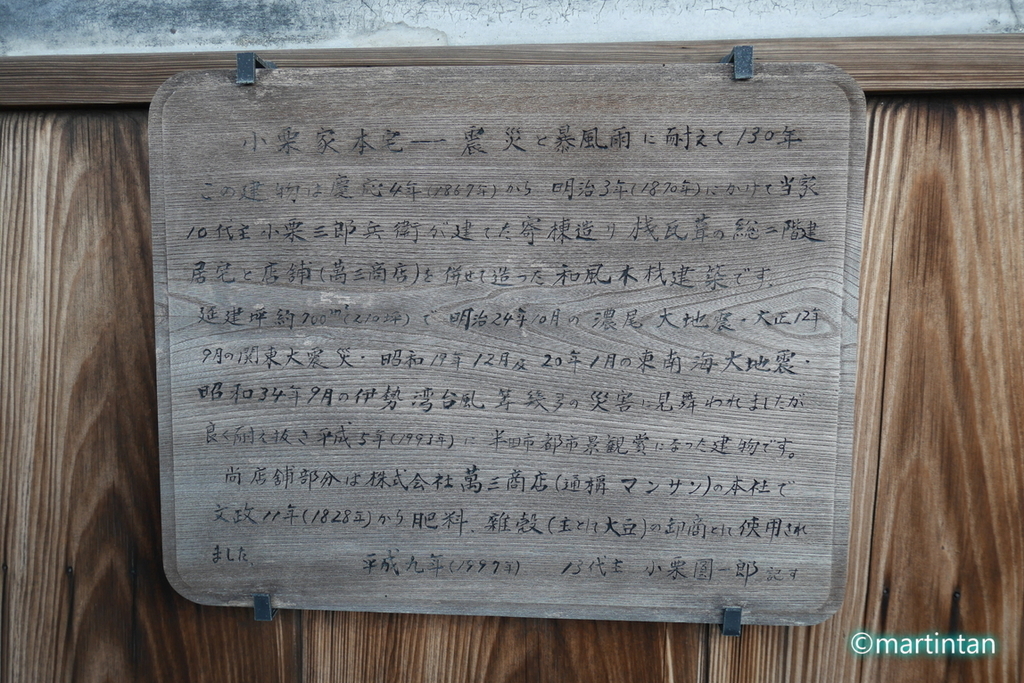 小栗家本宅──震災と暴風雨に耐えて130年
この建物は慶応4年(1867年)から 明治3年(1870年)にかけて当家
10代主小栗三郎兵衛が建てた寄棟造り桟瓦葺の総二階建
居宅と店舗(萬三商店)を併せて造った和風木材建築です。
延建坪約700m²(210坪)で 明治24年10月の濃尾大地震・大正12年
9月の関東大震災・昭和19年12月及20年1月の東南海大地震・
昭和34年9月の伊勢湾台風等幾多の災害に見舞われましたが
良く耐え抜き平成5年(1993年)に半田市都市景観賞になった建物です。
尚店舗部分は株式会社萬三商店(通稱 マンサン)の本社で
文政11年(1828年)から肥料、雑穀(主として大豆)の卸商として使用され
ました。 平成九年(1997年) 13代主 小栗圓一郎 記す
©martintan